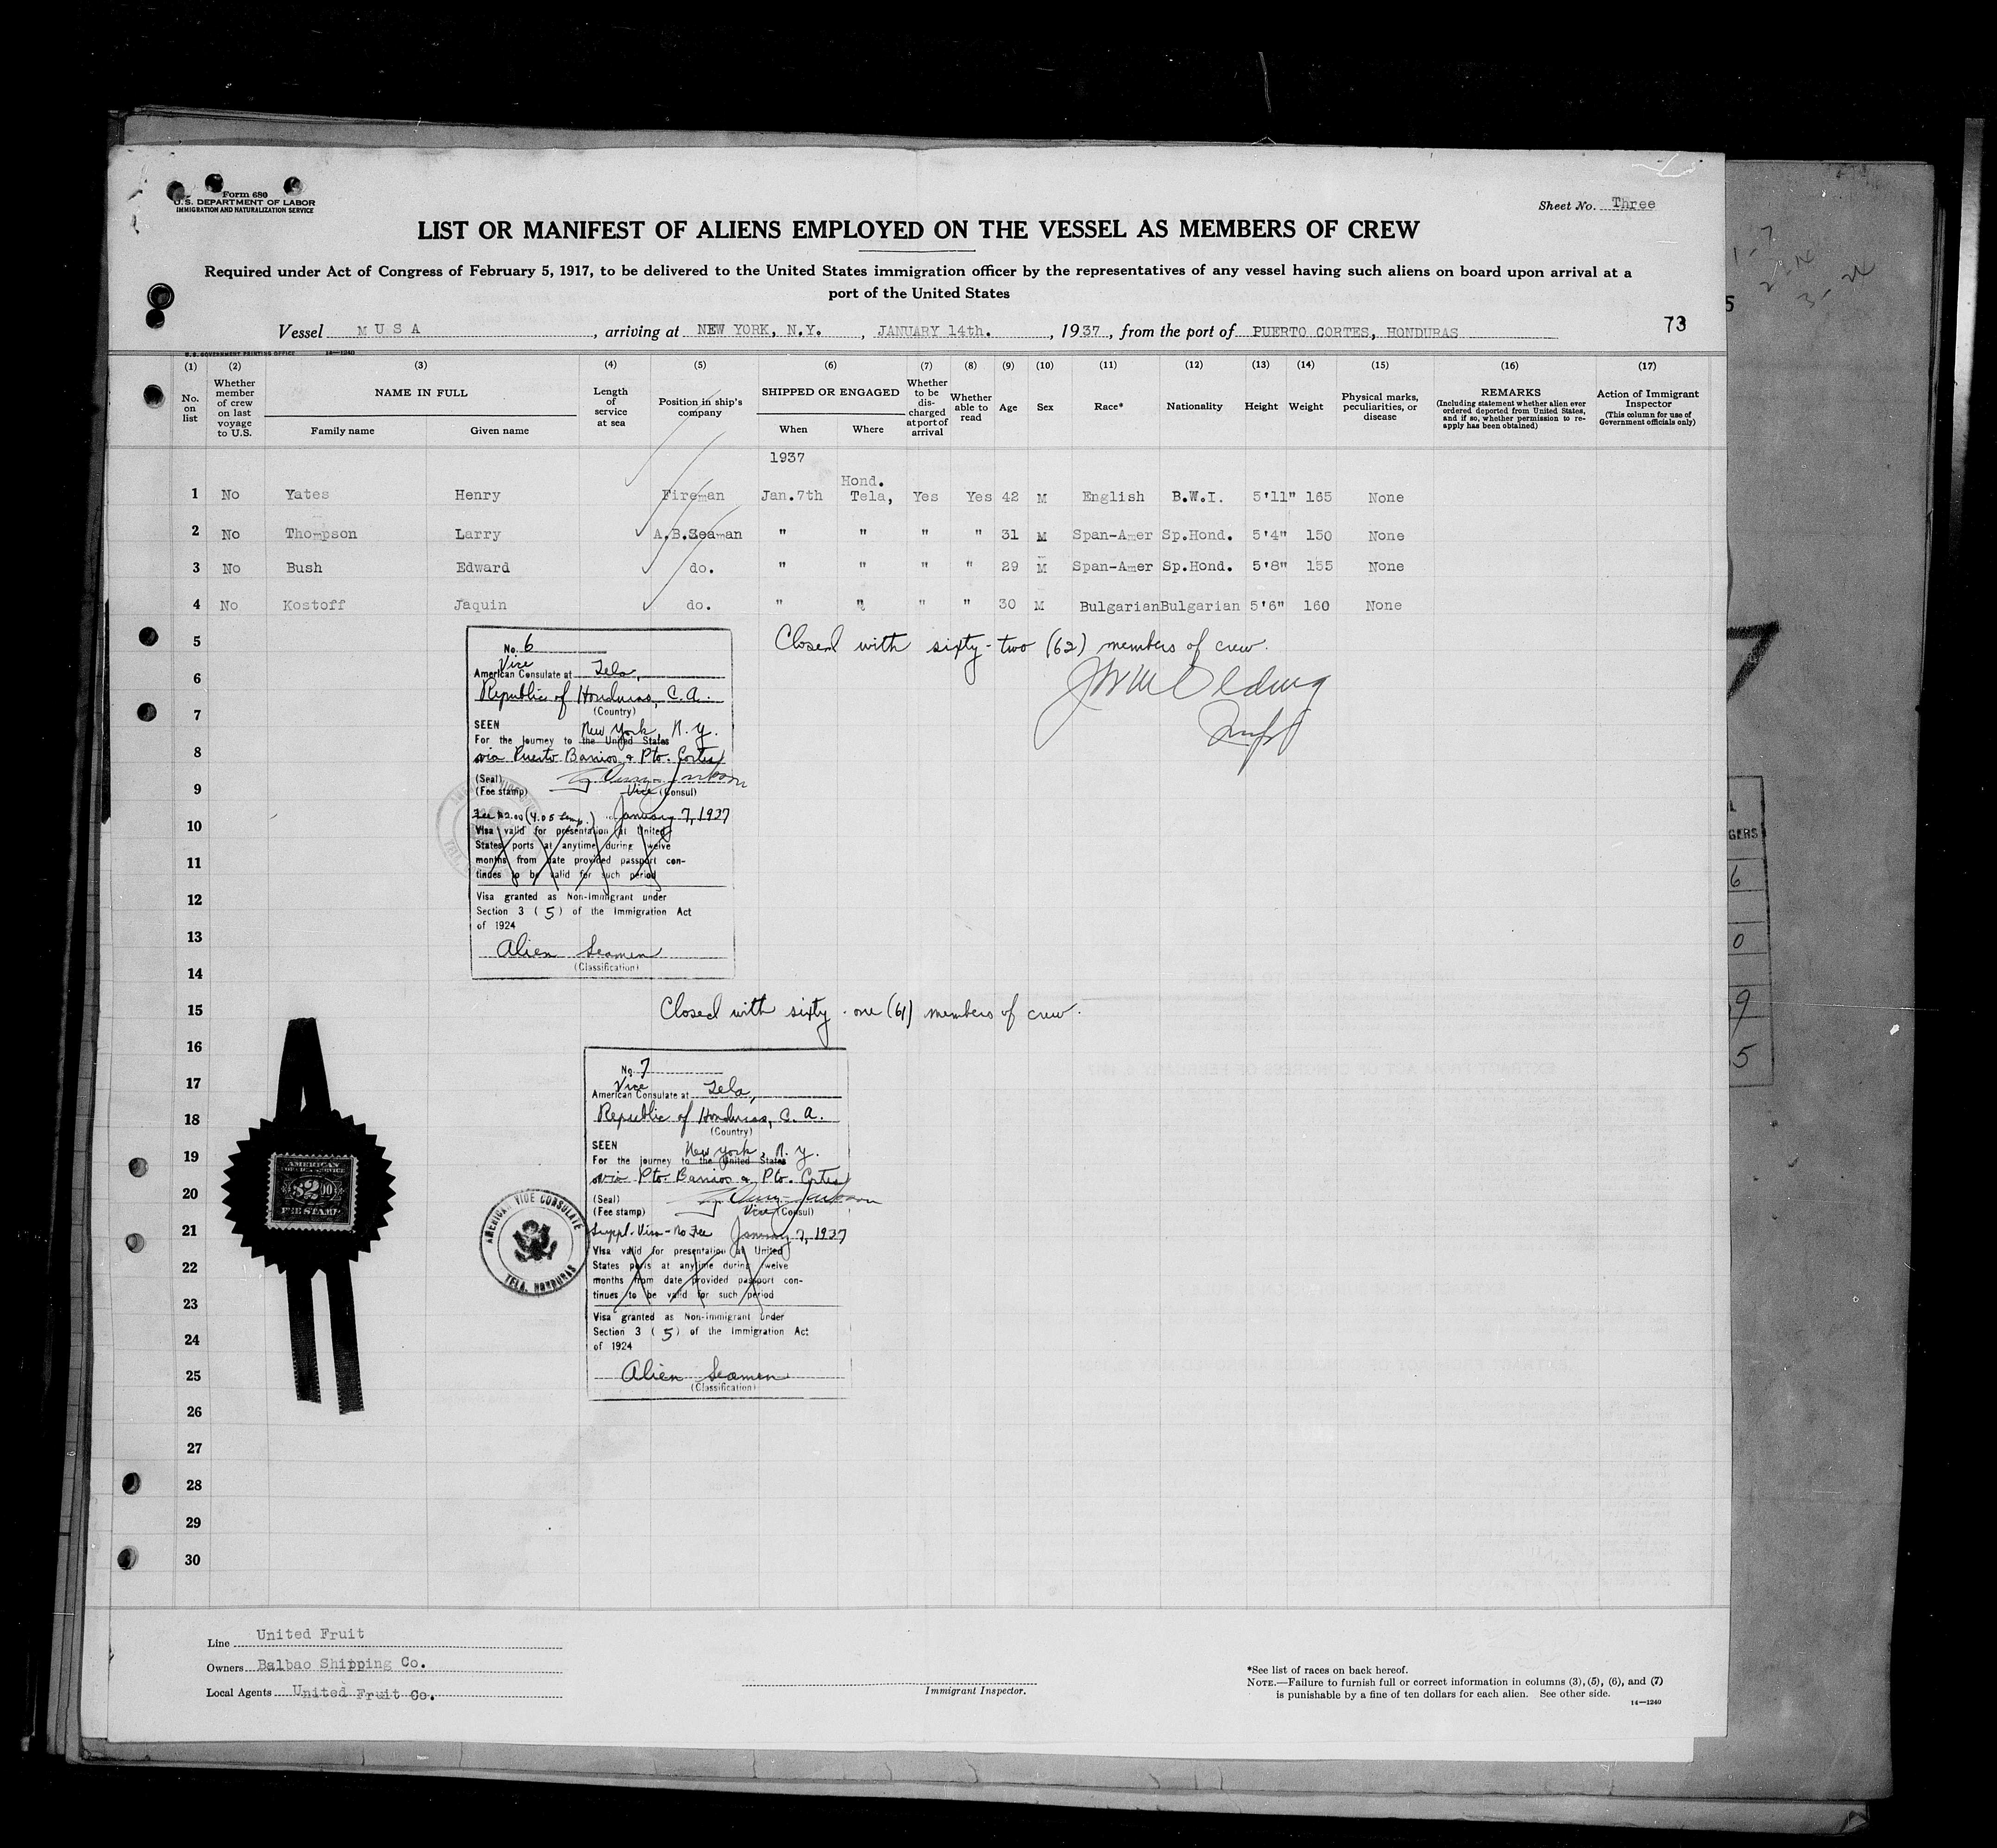 Form 680
U.S. DEPARTMENT OF LABOR
IMMIGRATION AND NATURALIZATION SERVICE
Sheet No. Three
LIST OR MANIFEST OF ALIENS EMPLOYED ON THE VESSEL AS MEMBERS OF CREW
Required under Act of Congress of February 5, 1917, to be delivered to the United States immigration officer by the representatives of any vessel having such aliens on board upon arrival at a
port of the United States
Vessel MUSA, arriving at NEW YORK, N.Y., JANUARY 14th., 1937, from the port of PUERTO CORTES, HONDURAS
73
U.S. GOVERNMENT PRINTING OFFICE 14—1240
(1) (2) (3) (4) (5) (6) (7) (8) (9) (10) (11) (12) (13) (14) (15) (16) (17)
No. on list
Whether member of crew on last voyage to U.S.
NAME IN FULL
Family name Given name
Length of service at sea
Position in ship's company
SHIPPED OR ENGAGED
When Where
Whether to be discharged at port of arrival
Whether able to read
Age Sex Race* Nationality Height Weight
Physical marks, peculiarities, or disease
REMARKS
(Including statement whether alien ever ordered deported from United States, and if so, whether permission to reapply has been obtained)
Action of Immigrant Inspector
(This column for use of Government officials only)
1937
Hond.
1 No Yates Henry Fireman Jan.7th Tela, Yes Yes 42 M English B.W.I. 5'11" 165 None
2 No Thompson Larry A.B.Seaman " " " " 31 M Span-Amer Sp.Hond. 5'4" 150 None
3 No Bush Edward do. " " " " 29 M Span-Amer Sp.Hond. 5'8" 155 None
4 No Kostoff Jaquin do. " " " " 30 M Bulgarian Bulgarian 5'6" 160 None
5
6
7
8
9
10
11
12
13
14
15
16
17
18
19
20
21
22
23
24
25
26
27
28
29
30
Closed with sixty-two (62) members of crew.
No. 6
Vice
American Consulate at Tela,
Republic of Honduras, C.A.
(Country)
SEEN
New York, N.Y.
For the journey to the United States
via Puerto Barrios & Pto. Cortes
(Seal)
(Fee stamp) Vice (Consul)
Fee $2.00 (4.05 Lmp.) January 7, 1937
Visa valid for presentation at United
States ports at anytime during twelve
months from date provided passport con-
tinues to be valid for such period
Visa granted as Non-Immigrant under
Section 3 (5) of the Immigration Act
of 1924
Alien Seamen
(Classification)
Closed with sixty-one (61) members of crew.
No. 7
Vice
American Consulate at Tela,
Republic of Honduras, C.A.
(Country)
SEEN
New York, N.Y.
For the journey to the United States
via Pto. Barrios & Pto. Cortes
(Seal)
(Fee stamp) Vice (Consul)
Suppl. Visa - No Fee January 7, 1937
Visa valid for presentation at United
States ports at anytime during twelve
months from date provided passport con-
tinues to be valid for such period
Visa granted as Non-Immigrant under
Section 3 (5) of the Immigration Act
of 1924
Alien Seamen
(Classification)
AMERICAN VICE CONSULATE
TELA, HONDURAS
AMERICAN
$2.00
FEE STAMP
Line United Fruit
Owners Balbao Shipping Co.
Local Agents United Fruit Co.
Immigrant Inspector.
*See list of races on back hereof.
NOTE.—Failure to furnish full or correct information in columns (3), (5), (6), and (7)
is punishable by a fine of ten dollars for each alien. See other side.
14—1240